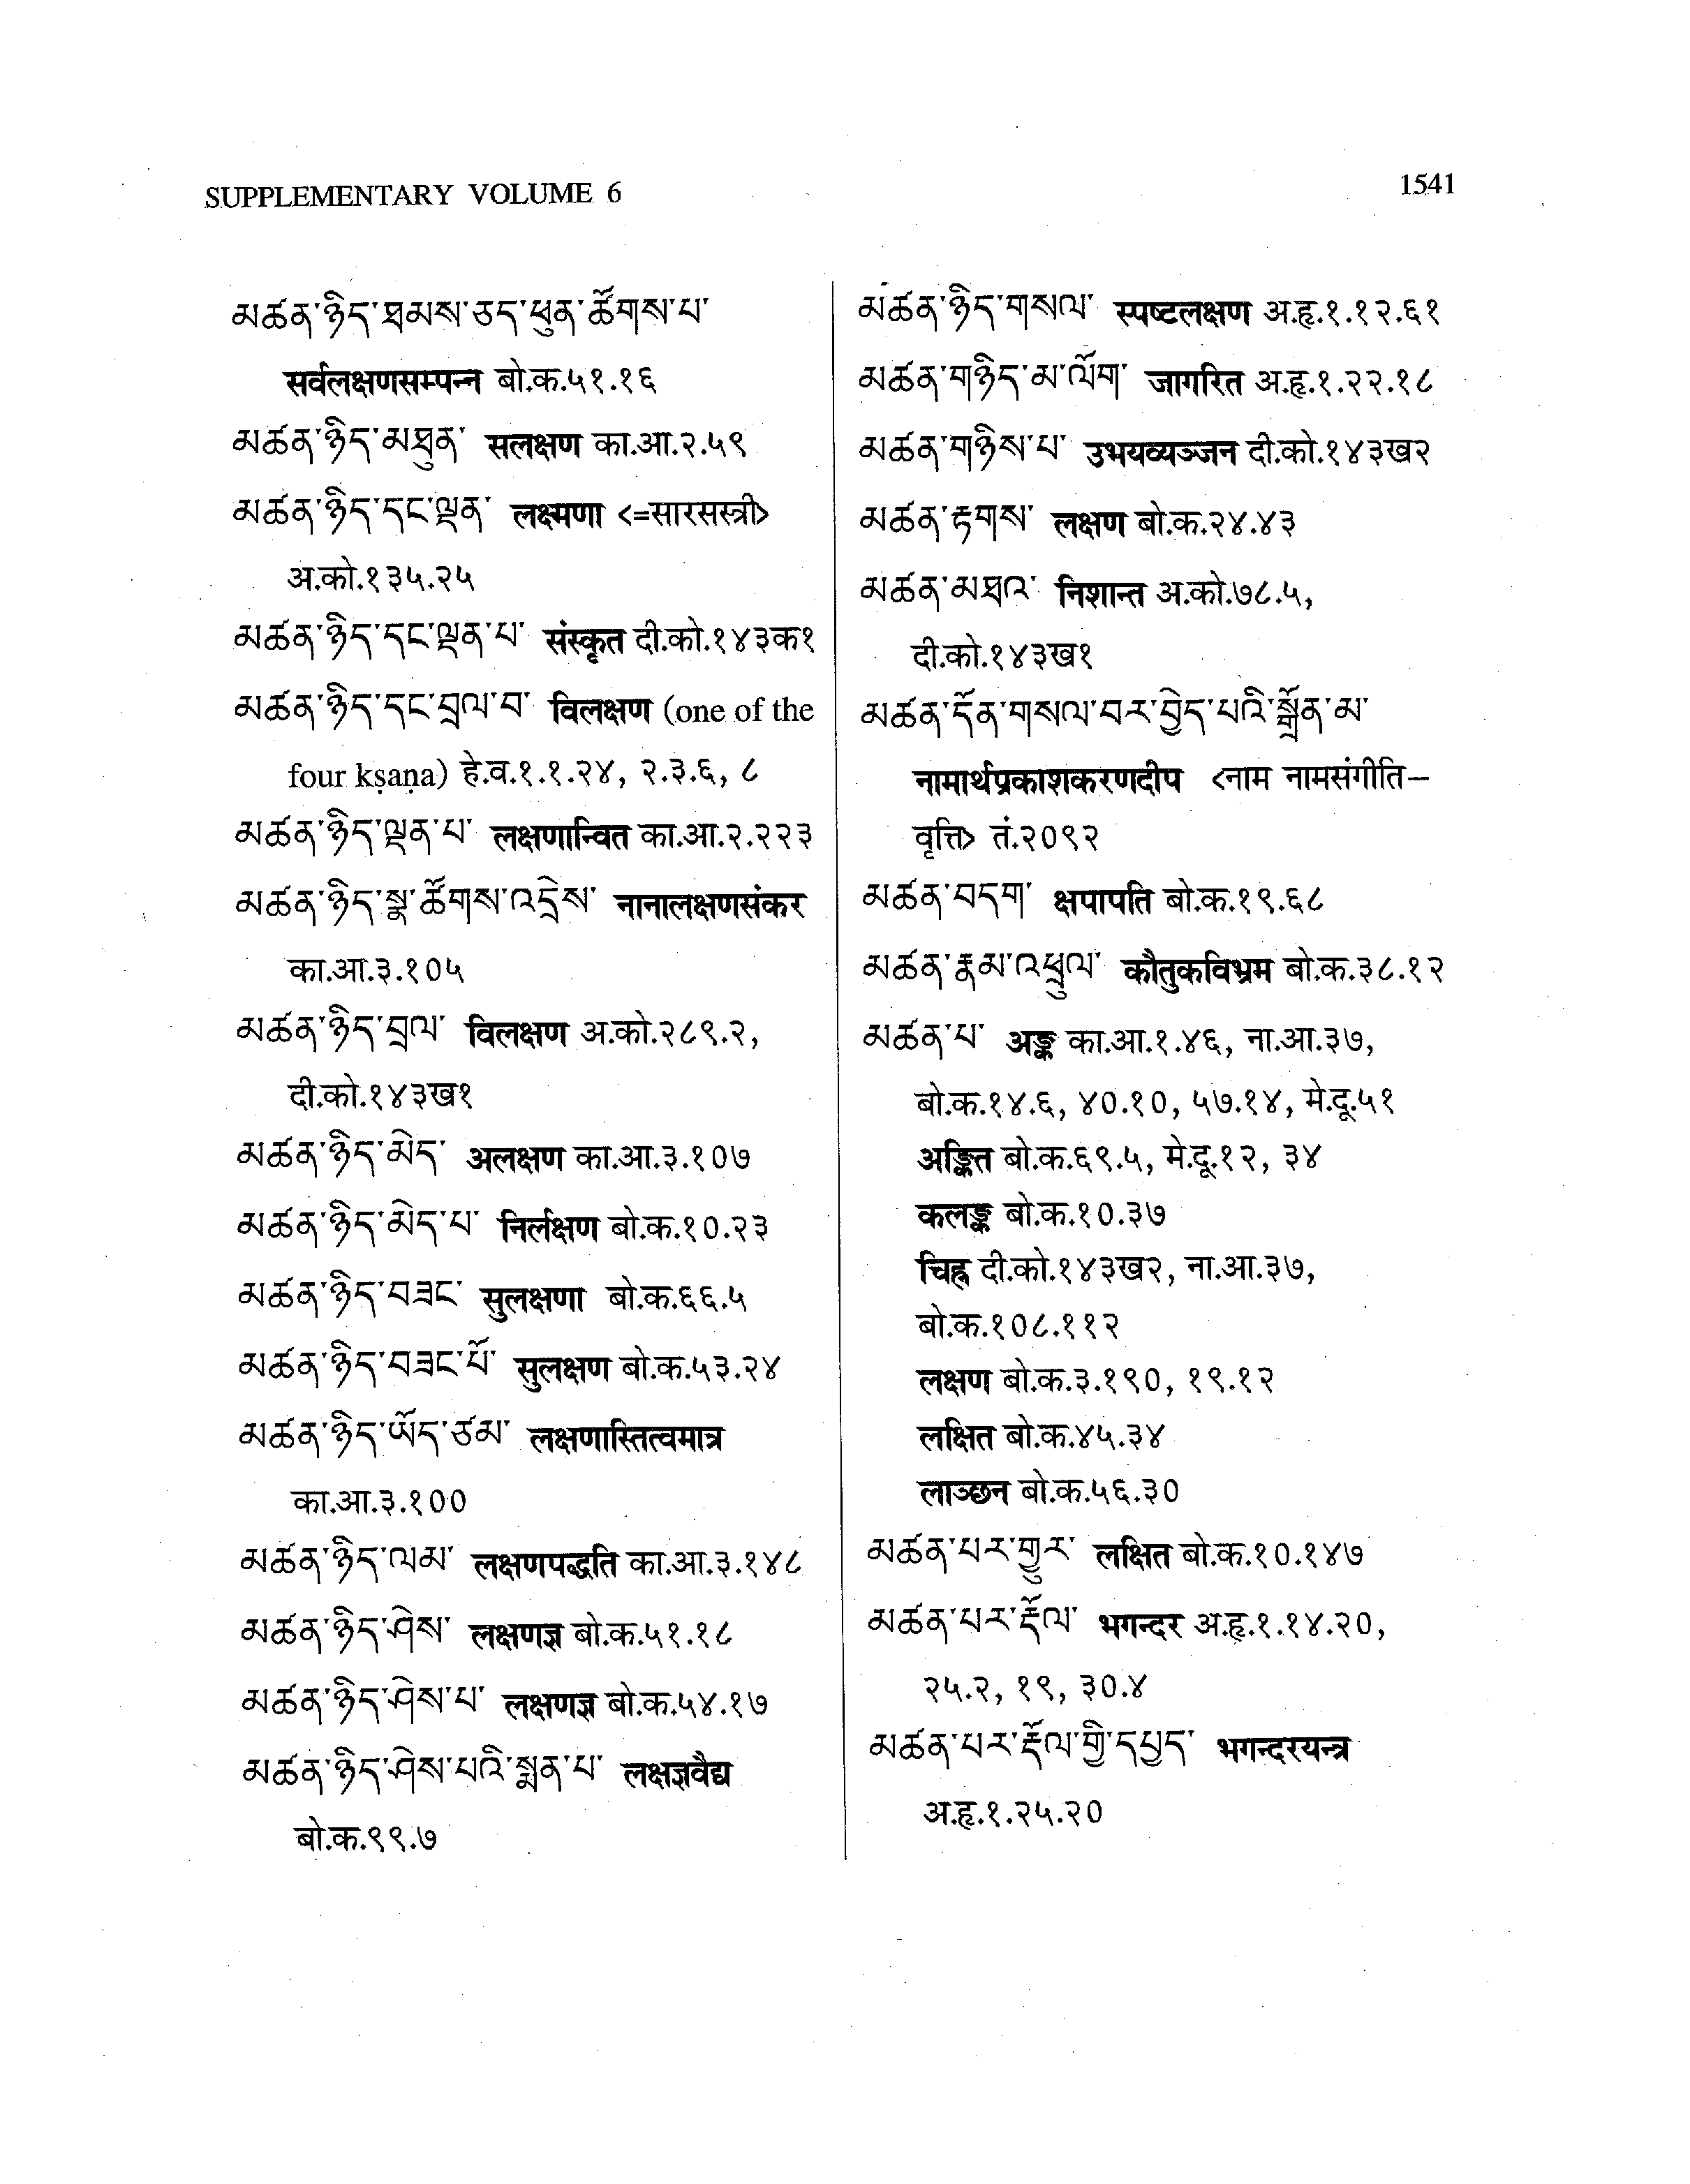 SUPPLEMENTARY VOLUME 6
1541
མཚན་ཉིད་ཐམས་ཅད་ཕུན་ཚོགས་པ་
सर्वलक्षणसम्पन्न बो.क.५१.१६
མཚན་ཉིད་མཐུན་ सलक्षण का.आ.२.५९
མཚན་ཉིད་དང་ལྡན་ लक्ष्मणा <=सारसस्त्री>
अ.को.१३५.२५
མཚན་ཉིད་དང་ལྡན་པ་ संस्कृत दी.को.१४३क१
མཚན་ཉིད་དང་བྲལ་བ་ विलक्षण (one of the
four kṣaṇa) हे.व.१.१.२४, २.३.६, ८
མཚན་ཉིད་ལྡན་པ་ लक्षणान्वित का.आ.२.२२३
མཚན་ཉིད་སྣ་ཚོགས་འདྲེས་ नानालक्षणसंकर
का.आ.३.१०५
མཚན་ཉིད་བྲལ་ विलक्षण अ.को.२८९.२,
दी.को.१४३ख१
མཚན་ཉིད་མེད་ अलक्षण का.आ.३.१०७
མཚན་ཉིད་མེད་པ་ निर्लक्षण बो.क.१०.२३
མཚན་ཉིད་བཟང་ सुलक्षणा बो.क.६६.५
མཚན་ཉིད་བཟང་པོ་ सुलक्षण बो.क.५३.२४
མཚན་ཉིད་ཡོད་ཙམ་ लक्षणास्तित्वमात्र
का.आ.३.१००
མཚན་ཉིད་ལམ་ लक्षणपद्धति का.आ.३.१४८
མཚན་ཉིད་ཤེས་ लक्षणज्ञ बो.क.५१.१८
མཚན་ཉིད་ཤེས་པ་ लक्षणज्ञ बो.क.५४.१७
མཚན་ཉིད་ཤེས་པའི་སྨན་པ་ लक्षज्ञवैद्य
बो.क.९९.७
མཚན་ཉིད་གསལ་ स्पष्टलक्षण अ.हृ.१.१२.६१
མཚན་གཉིད་མ་ལོག་ जागरित अ.हृ.१.२२.१८
མཚན་གཉིས་པ་ उभयव्यञ्जन दी.को.१४३ख२
མཚན་རྟགས་ लक्षण बो.क.२४.४३
མཚན་མཐའ་ निशान्त अ.को.७८.५,
दी.को.१४३ख१
མཚན་དོན་གསལ་བར་བྱེད་པའི་སྒྲོན་མ་
नामार्थप्रकाशकरणदीप <नाम नामसंगीति–
वृत्ति> तं.२०९२
མཚན་བདག་ क्षपापति बो.क.१९.६८
མཚན་རྣམ་འཕྲུལ་ कौतुकविभ्रम बो.क.३८.१२
མཚན་པ་ अङ्क का.आ.१.४६, ना.आ.३७,
बो.क.१४.६, ४०.१०, ५७.१४, मे.दू.५१
अङ्कित बो.क.६९.५, मे.दू.१२, ३४
कलङ्क बो.क.१०.३७
चिह्न दी.को.१४३ख२, ना.आ.३७,
बो.क.१०८.११२
लक्षण बो.क.३.१९०, १९.१२
लक्षित बो.क.४५.३४
लाञ्छन बो.क.५६.३०
མཚན་པར་གྱུར་ लक्षित बो.क.१०.१४७
མཚན་པར་རྡོལ་ भगन्दर अ.हृ.१.१४.२०,
२५.२, १९, ३०.४
མཚན་པར་རྡོལ་གྱི་དཔྱད་ भगन्दरयन्त्र
अ.हृ.१.२५.२०